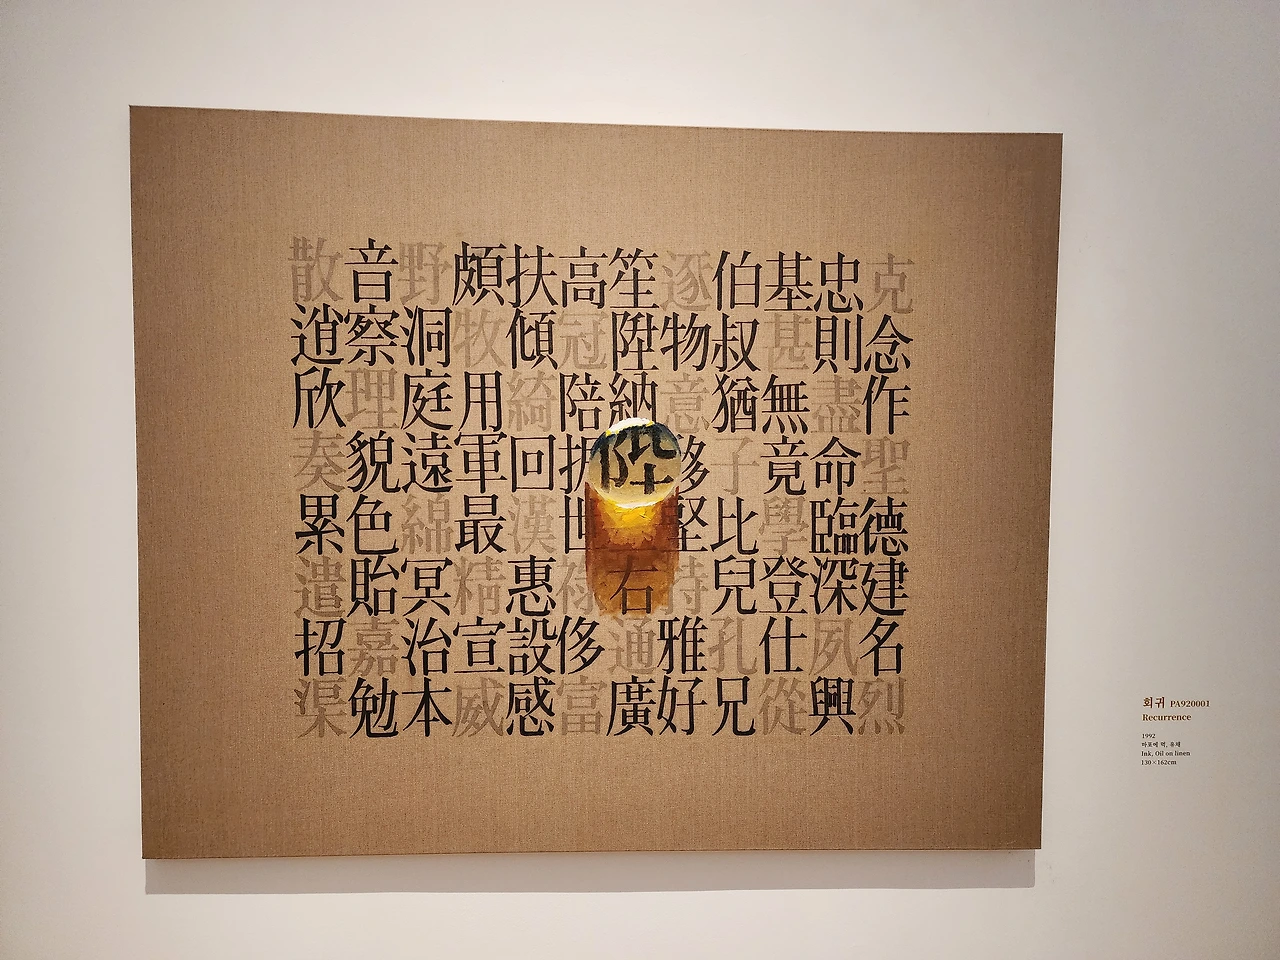 克念作聖德建名烈
忠則盡命臨深夙興
基甚無竟學登仕從
伯叔猶子比兒孔兄
逐物意移堅持雅好
笙陞納陛右通廣
高冠陪振世祿侈富
扶傾綺回漢惠設感
頗牧用軍最精宣威
野洞庭遠綿冥治本
音察理貌色貽嘉勉
散逍欣奏累遣招渠
회귀 PA920001
Recurrence
1992
마포에 먹, 유채
Ink, Oil on linen
130×162cm